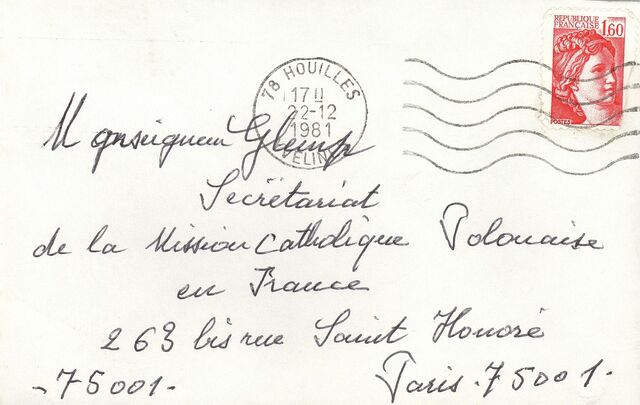 REPUBLIQUE
FRANÇAISE
1,60
POSTES
78 HOUILLES
17H
22-12
1981
YVELINES
Monseigneur Glemp
Secrétariat
de la Mission Catholique Polonaise
en France
263 bis rue Saint Honoré
-75001- Paris.75001.